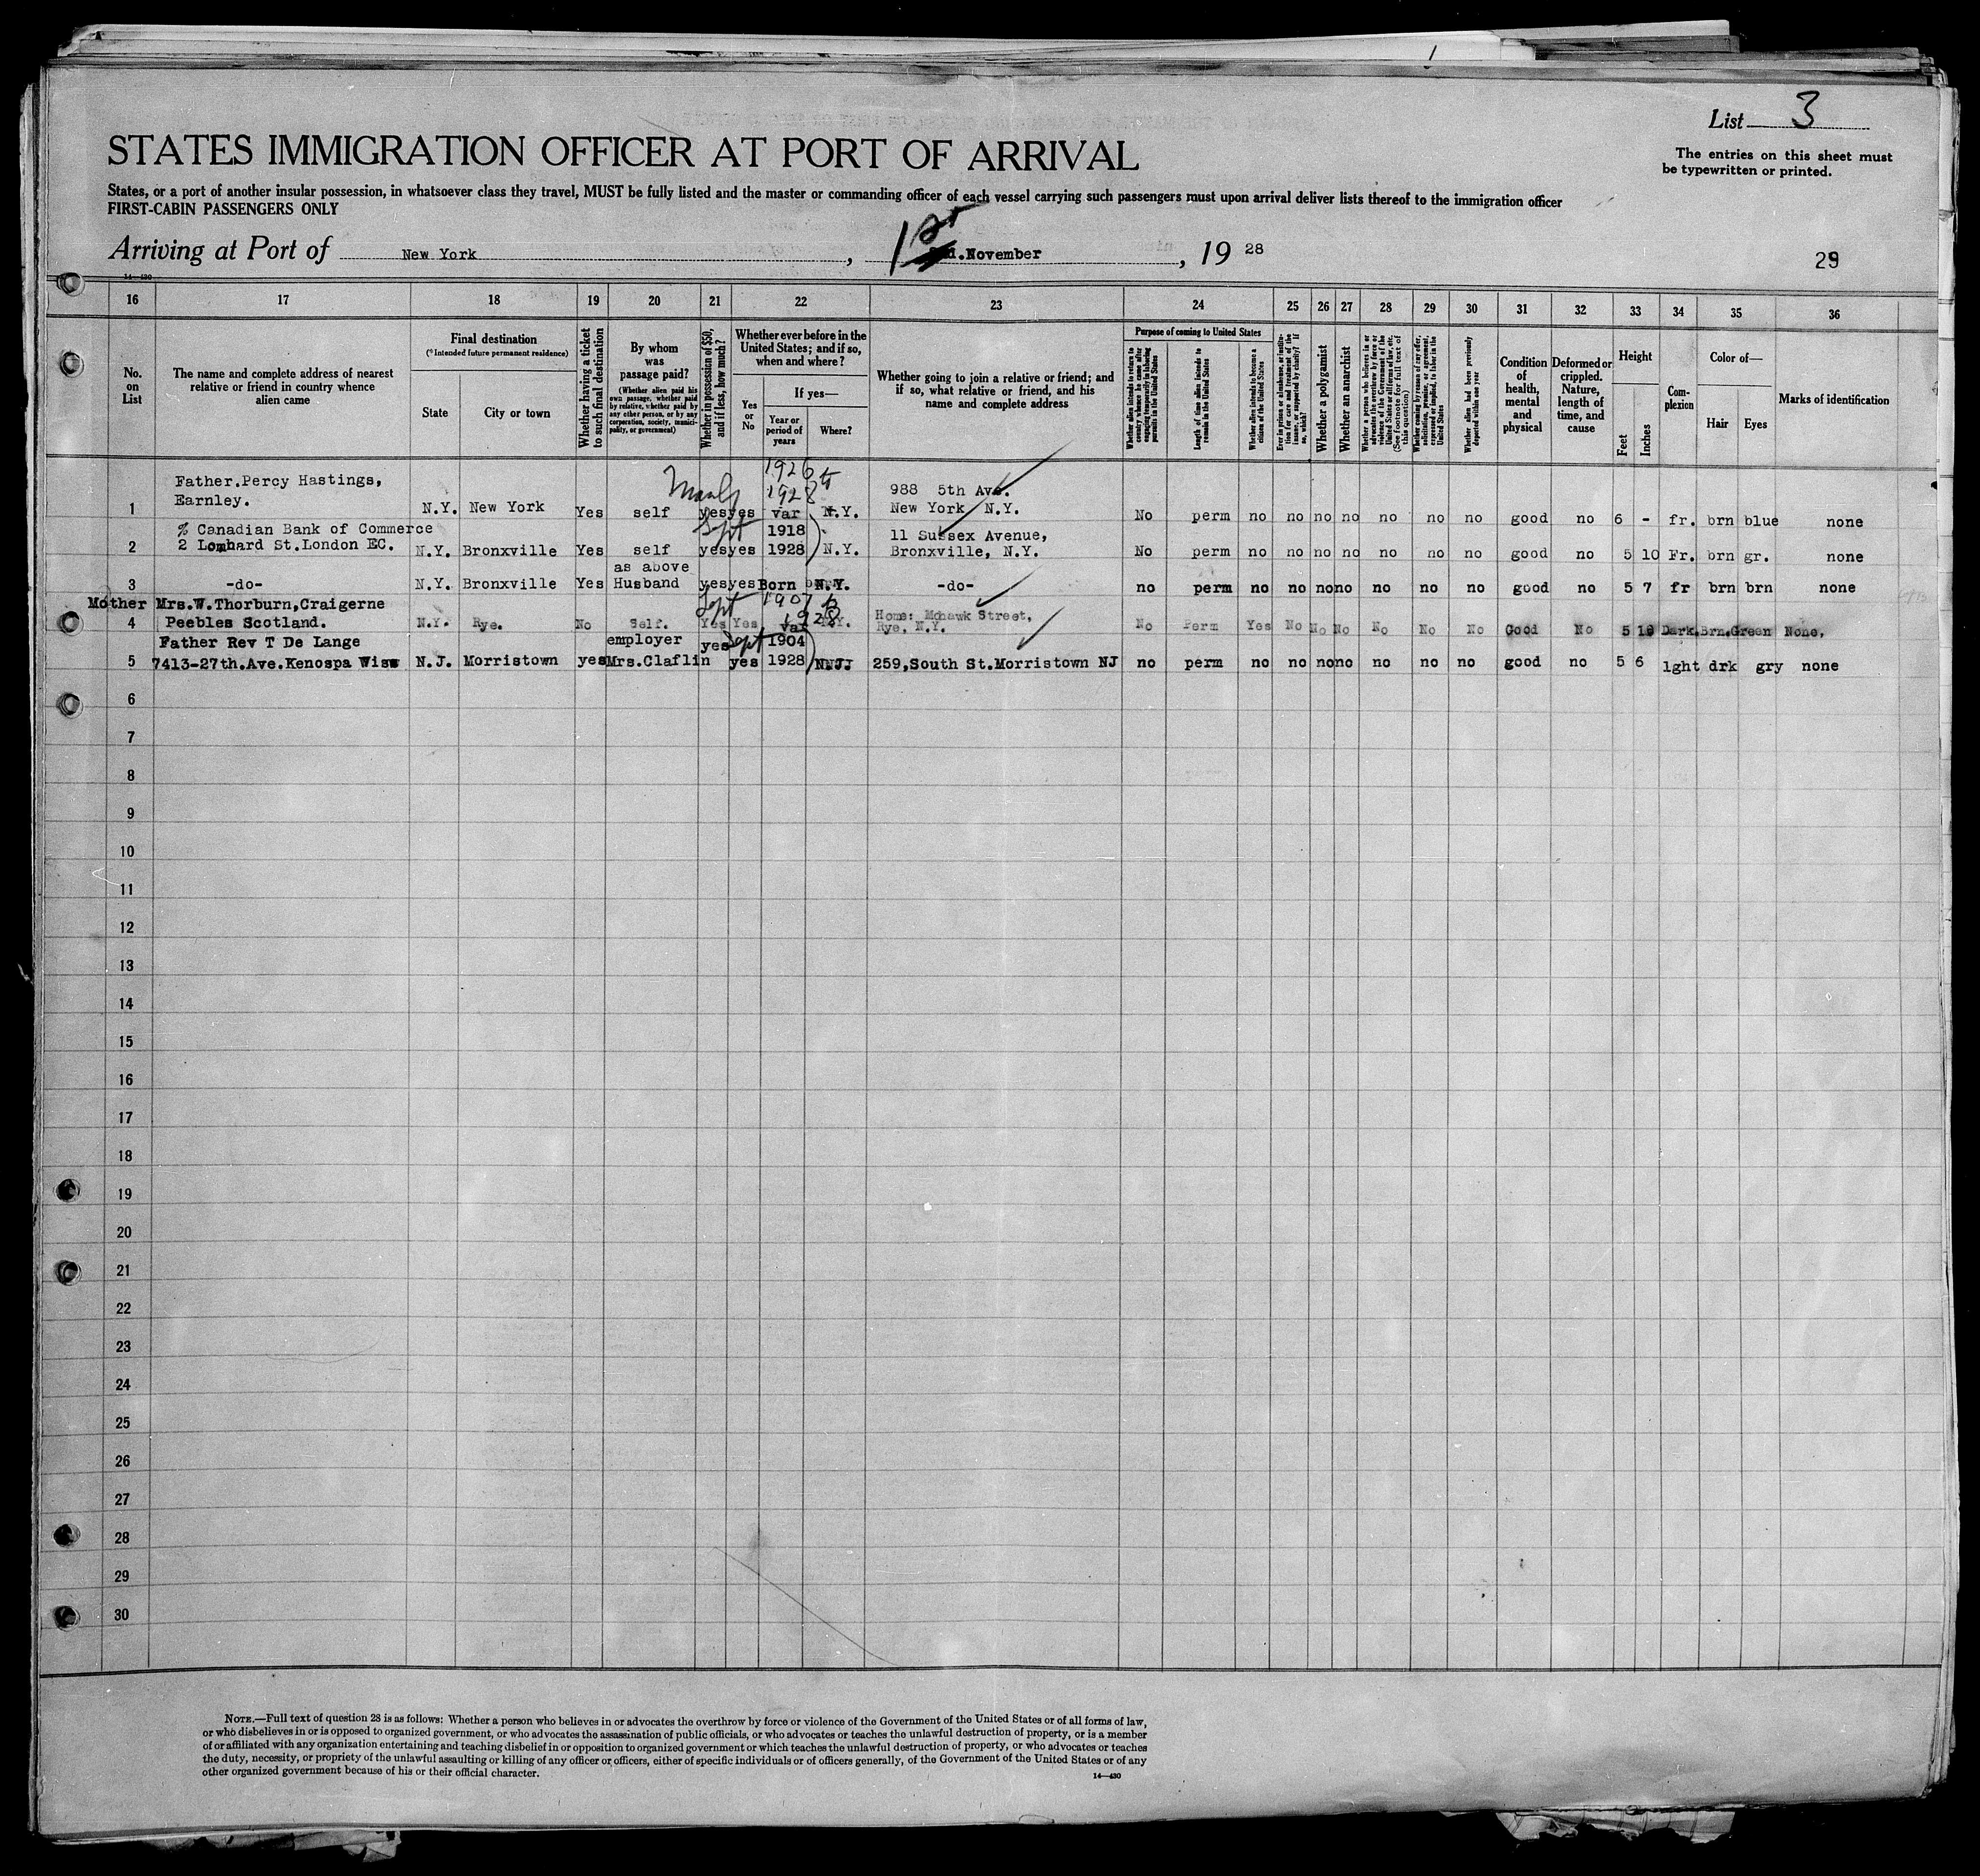 List 3
The entries on this sheet must
be typewritten or printed.
STATES IMMIGRATION OFFICER AT PORT OF ARRIVAL
States, or a port of another insular possession, in whatsoever class they travel, MUST be fully listed and the master or commanding officer of each vessel carrying such passengers must upon arrival deliver lists thereof to the immigration officer
FIRST-CABIN PASSENGERS ONLY
Arriving at Port of New York, 1st November, 1928
29
14—430
16 17 18 19 20 21 22 23 24 25 26 27 28 29 30 31 32 33 34 35 36
No.
on
List
The name and complete address of nearest
relative or friend in country whence
alien came
Final destination
(*Intended future permanent residence)
State
City or town
Whether having a ticket
to such final destination
By whom
was
passage paid?
(Whether alien paid his
own passage, whether paid
by relative, whether paid by
any other person, or by any
corporation, society, munici-
pality, or government)
Whether in possession of $50,
and if less, how much?
Whether ever before in the
United States; and if so,
when and where?
Yes
or
No
If yes—
Year or
period of
years
Where?
Whether going to join a relative or friend; and
if so, what relative or friend, and his
name and complete address
Purpose of coming to United States
Whether alien intends to return to
country whence he came after
engaging temporarily in laboring
pursuits in the United States
Length of time alien intends to
remain in the United States
Whether alien intends to become a
citizen of the United States
Ever in prison or almshouse, or institu-
tion for care and treatment of the
insane, or supported by charity? If
so, which?
Whether a polygamist
Whether an anarchist
Whether a person who believes in or
advocates the overthrow by force or
violence of the Government of the
United States or all forms of law, etc.
(See footnote for full text of
this question)
Whether coming by reason of any offer,
solicitation, promise, or agreement,
expressed or implied, to labor in the
United States
Whether alien had been previously
deported within one year
Condition
of
health,
mental
and
physical
Deformed or
crippled.
Nature,
length of
time, and
cause
Height
Feet
Inches
Com-
plexion
Color of—
Hair
Eyes
Marks of identification
Father.Percy Hastings, 1926
Earnley. 1928 988 5th Ave.
1 N.Y. New York Yes self yes yes var N.Y. New York N.Y. No perm no no no no no no no good no 6 - fr. brn blue none
% Canadian Bank of Commerce Sept 1918 11 Sussex Avenue,
2 2 Lombard St.London EC. N.Y. Bronxville Yes self yes yes 1928 N.Y. Bronxville, N.Y. No perm no no no no no no no good no 5 10 Fr. brn gr. none
as above
3 -do- N.Y. Bronxville Yes Husband yes yes Born N.Y. -do- no perm no no no no no no no good no 5 7 fr brn brn none
Mother Mrs.W.Thorburn,Craigerne Sept 1907 Home: Mohawk Street,
4 Peebles Scotland. N.Y. Rye. No Self. Yes Yes 1928 var N.Y. Rye, N.Y. No Perm Yes No No No No No No Good No 5 Dark.Brn.Green None.
Father Rev T De Lange employer yes Sept 1904
5 7413-27th.Ave.Kenospa Wiss N.J. Morristown yes Mrs.Claflin yes 1928 N.J. 259,South St.Morristown NJ no perm no no no no no no no good no 5 6 lght drk gry none
6
7
8
9
10
11
12
13
14
15
16
17
18
19
20
21
22
23
24
25
26
27
28
29
30
NOTE.—Full text of question 28 is as follows: Whether a person who believes in or advocates the overthrow by force or violence of the Government of the United States or of all forms of law,
or who disbelieves in or is opposed to organized government, or who advocates the assassination of public officials, or who advocates or teaches the unlawful destruction of property, or is a member
of or affiliated with any organization entertaining and teaching disbelief in or opposition to organized government or which teaches the unlawful destruction of property, or who advocates or teaches
the duty, necessity, or propriety of the unlawful assaulting or killing of any officer or officers, either of specific individuals or of officers generally, of the Government of the United States or of any
other organized government because of his or their official character.
14—430